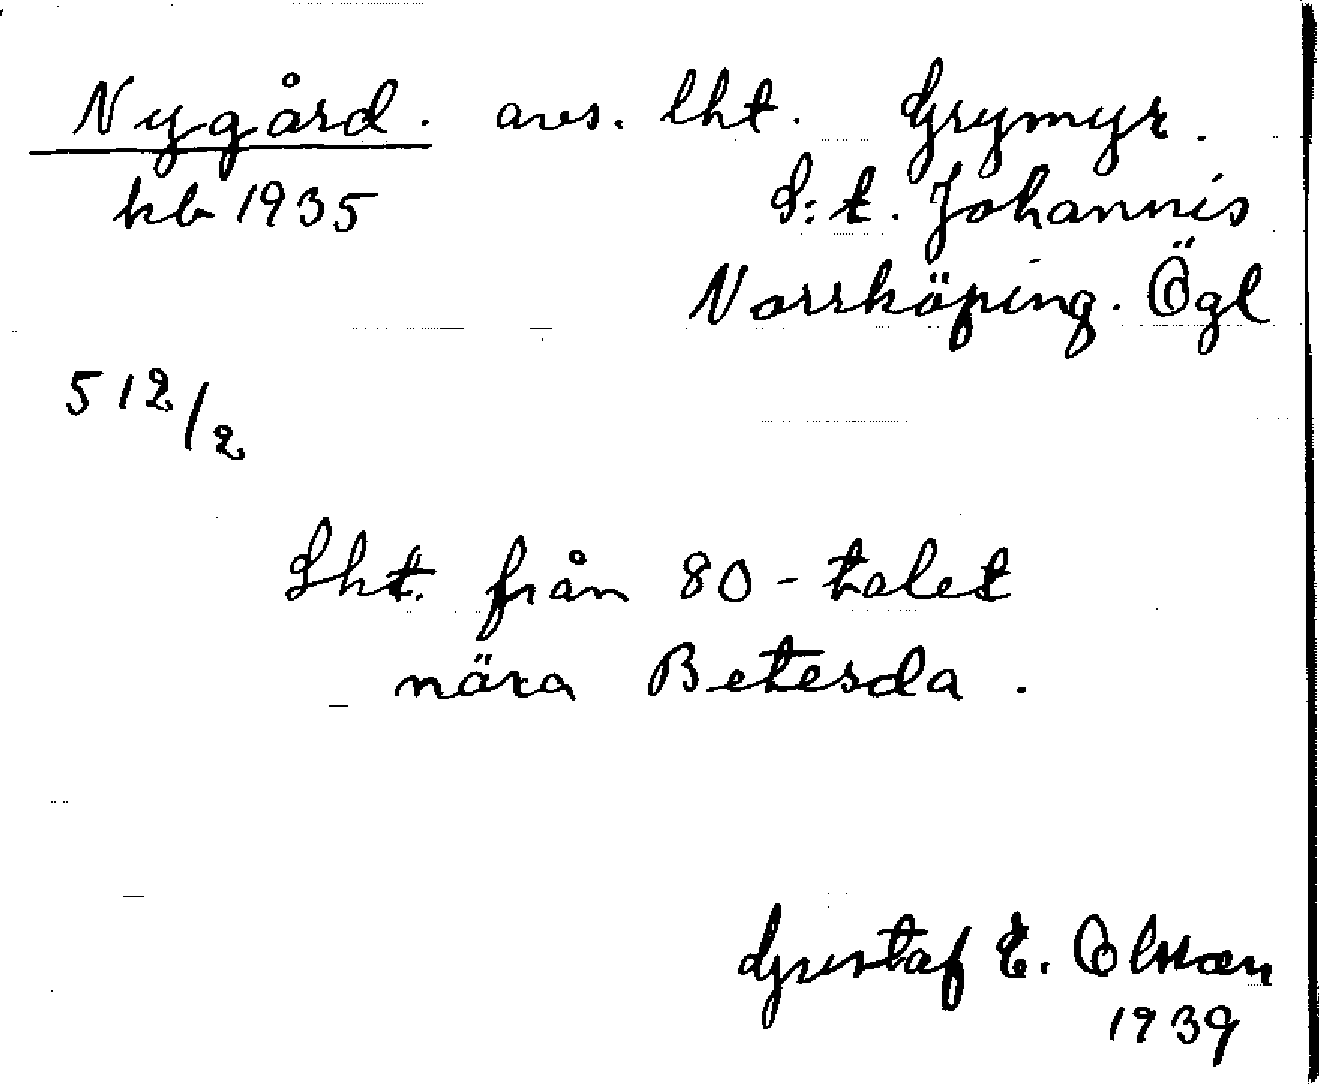 Nygård. avs. lht. Grymyr.
kb 1935 S:t. Johannis
Norrköping. Ögl
512/2
Lht. från 80-talet
nära Betesda.
Gustaf E. Olsson
1939